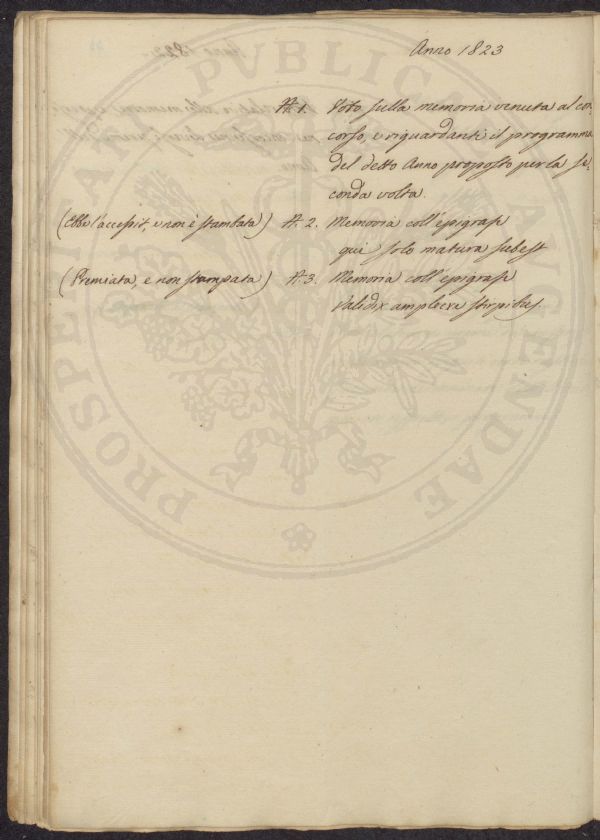 Anno 1823
N. 1. Voto sulla memoria venuta al con-
corso, e riguardante il programma
del detto Anno proposto per la se-
conda volta.
(Ebbe l'accessit, e non è stampata) N. 2. Memoria coll'epigrafe
qui solo matura subest
(Premiata, e non stampata) N. 3. Memoria coll'epigrafe
Validix amplecre stirpibus.
PROSPERITATI PUBLICAE AUGENDAE